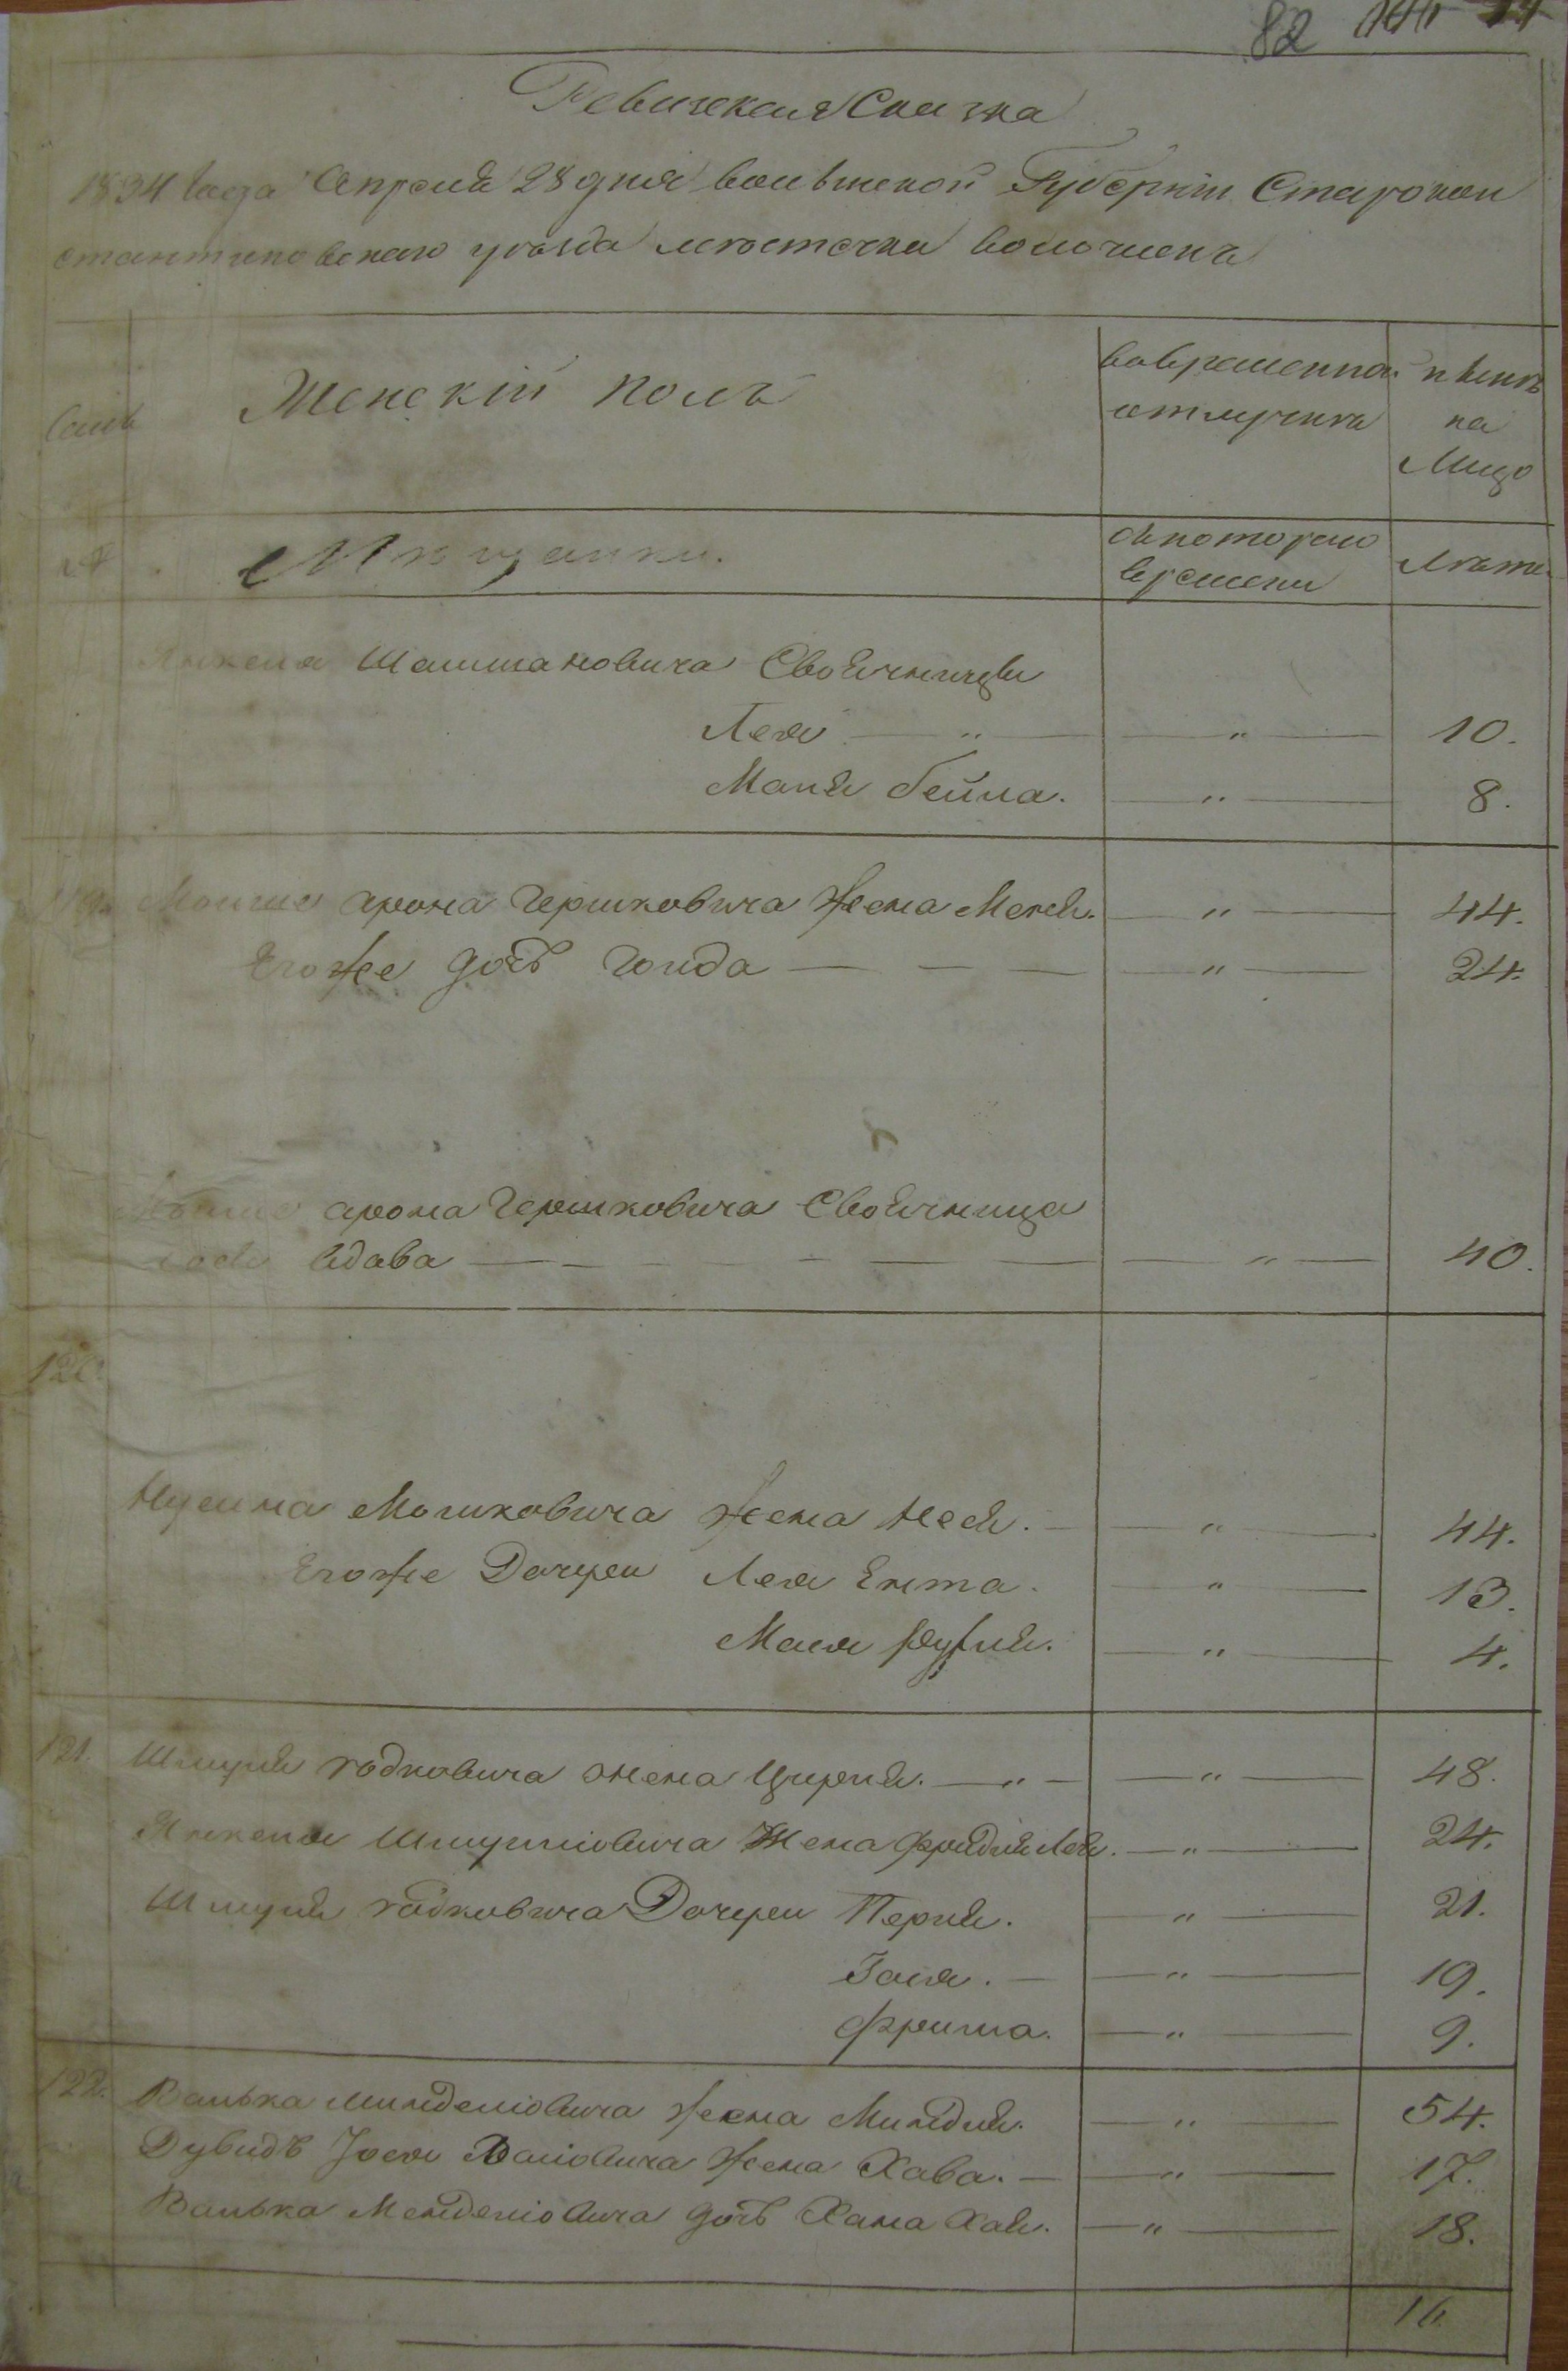 82
Ревижская Сказка
1834 года Апреля 28 дня волынской Губерніи Старокон
стантиновскаго уѣзда местечка волочискъ
Семьи
Женскій полъ
вовременной
отлучкѣ
нынѣ
на
Лицо
№
Мѣщанки.
Съкотораго
времени
Лѣта
Янкеля Шаишановича Своячницы
Лея — " — " — 10.
Маня бейла. — " — 8.
119. Мошше арона Гершковича Жена Меня. — " — 44.
Егоже дочь Голда — — — " — 24.
Мошше арона Гершковича Своячница
Адава — — — " — 40.
120.
Нусина Мошковича Жена Нося. — " — 44.
Егоже Дочери Лея Ента. — " — 13.
Мася — " — 4.
121. Шмуля годковича жена Цирля. — " — " — 48.
Янкеля Шмуліовича Жена Фридля Лея. — " — 24.
Шмуля годковича Дочери Перля. — " — 21.
Зося. — " — 19.
Фрима. — " — 9.
122. Валька Минделіовича Жена Миндля. — " — 54.
Дувидъ Іося Валіовича Жена Хава. — " — 17.
Валька Менделіовича дочь Хана Хая. — " — 18.
16.